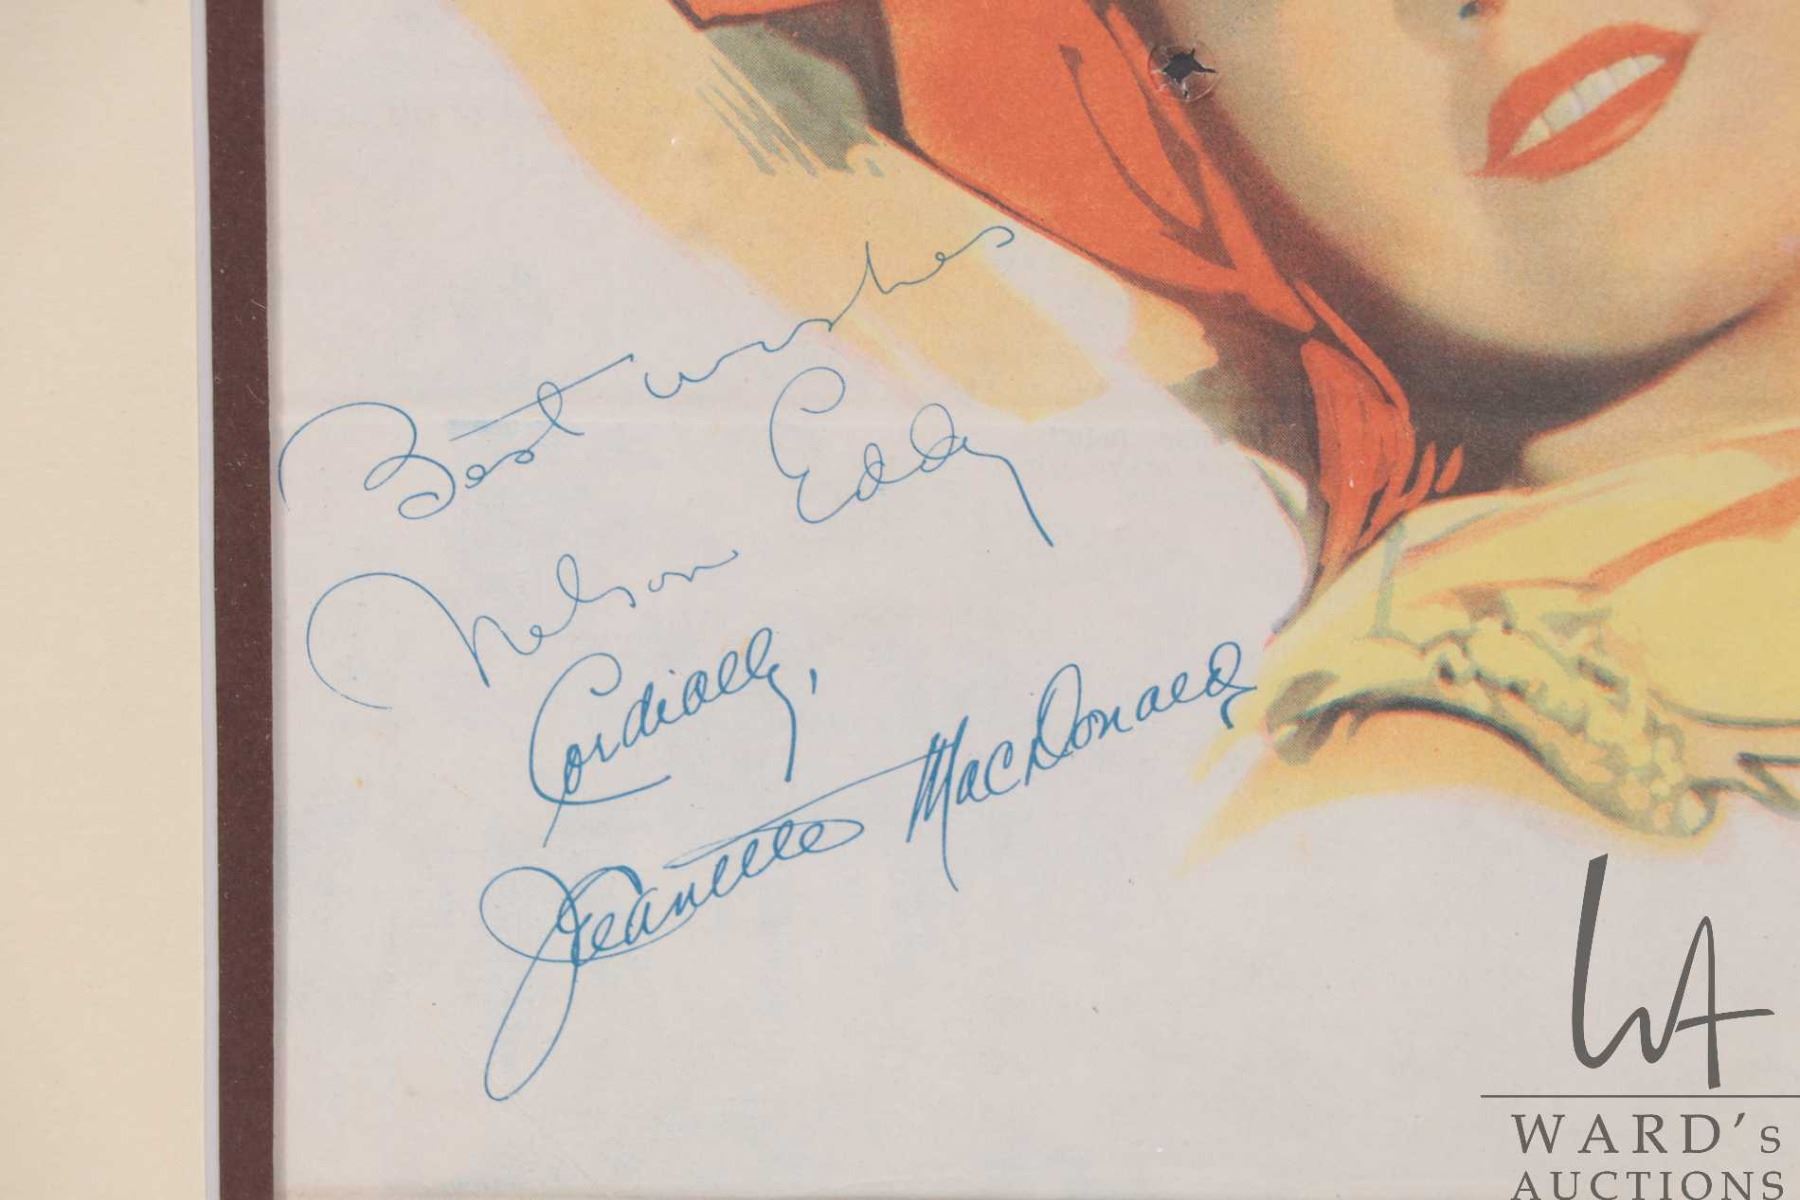 Best wishes
Nelson Eddy
Cordially,
Jeanette MacDonald
WA
WARD's
AUCTIONS